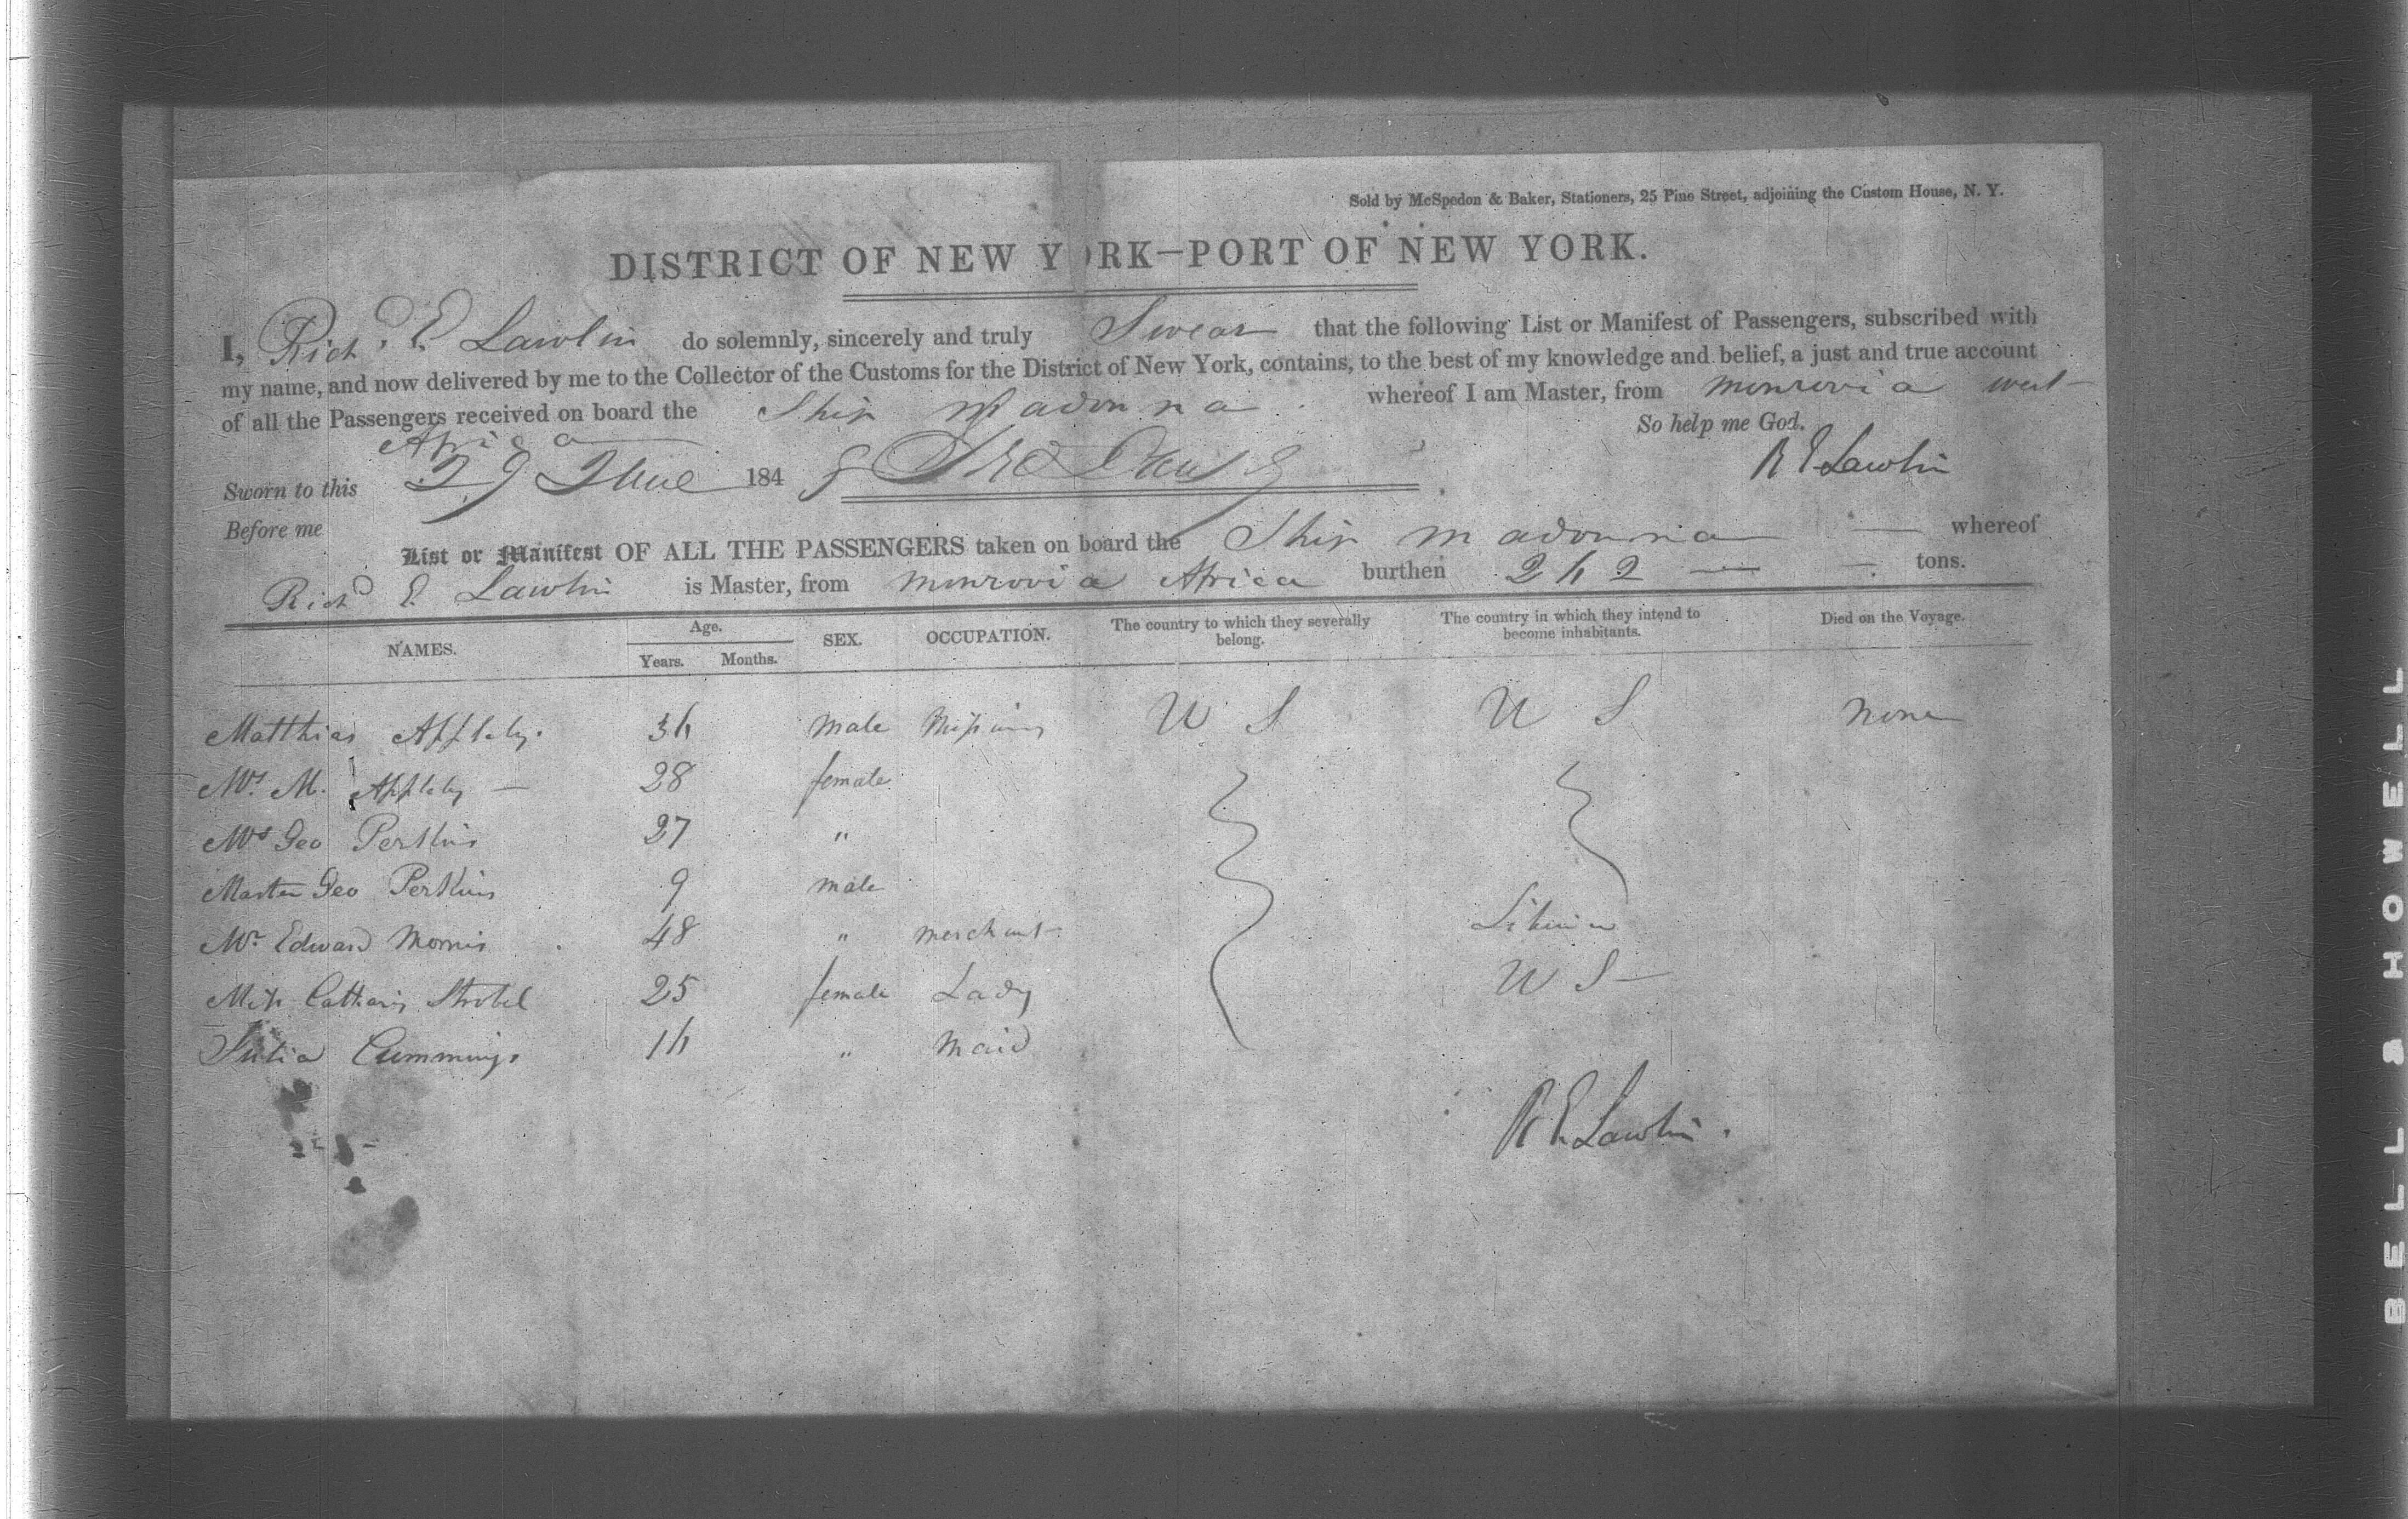 Sold by McSpedon & Baker, Stationers, 25 Pine Street, adjoining the Custom House, N. Y.
DISTRICT OF NEW Y RK—PORT OF NEW YORK.
I, Richd. E Lawlin do solemnly, sincerely and truly Swear that the following List or Manifest of Passengers, subscribed with
my name, and now delivered by me to the Collector of the Customs for the District of New York, contains, to the best of my knowledge and belief, a just and true account
of all the Passengers received on board the Ship Madonna whereof I am Master, from Monrovia West
Africa So help me God.
Sworn to this 29 June 184 R E Lawlin
Before me
List or Manifest OF ALL THE PASSENGERS taken on board the Ship Madonna — whereof
Richd E. Lawlin is Master, from Monrovia Africa burthen tons.
NAMES. Age. Years. Months. SEX. OCCUPATION. The country to which they severally belong. The country in which they intend to become inhabitants. Died on the Voyage.
Matthias Appleby. male U S U S None
Mrs. M. Appleby — 28 female
Mrs Geo Perkins 27 "
Master Geo Perkins 9 male
Mr. Edward Morris 48 " merchant Liberia
Miss Strobel 25 female Lady U S —
Julia Cummings " Maid
R E Lawlin.
BELL & HOWELL